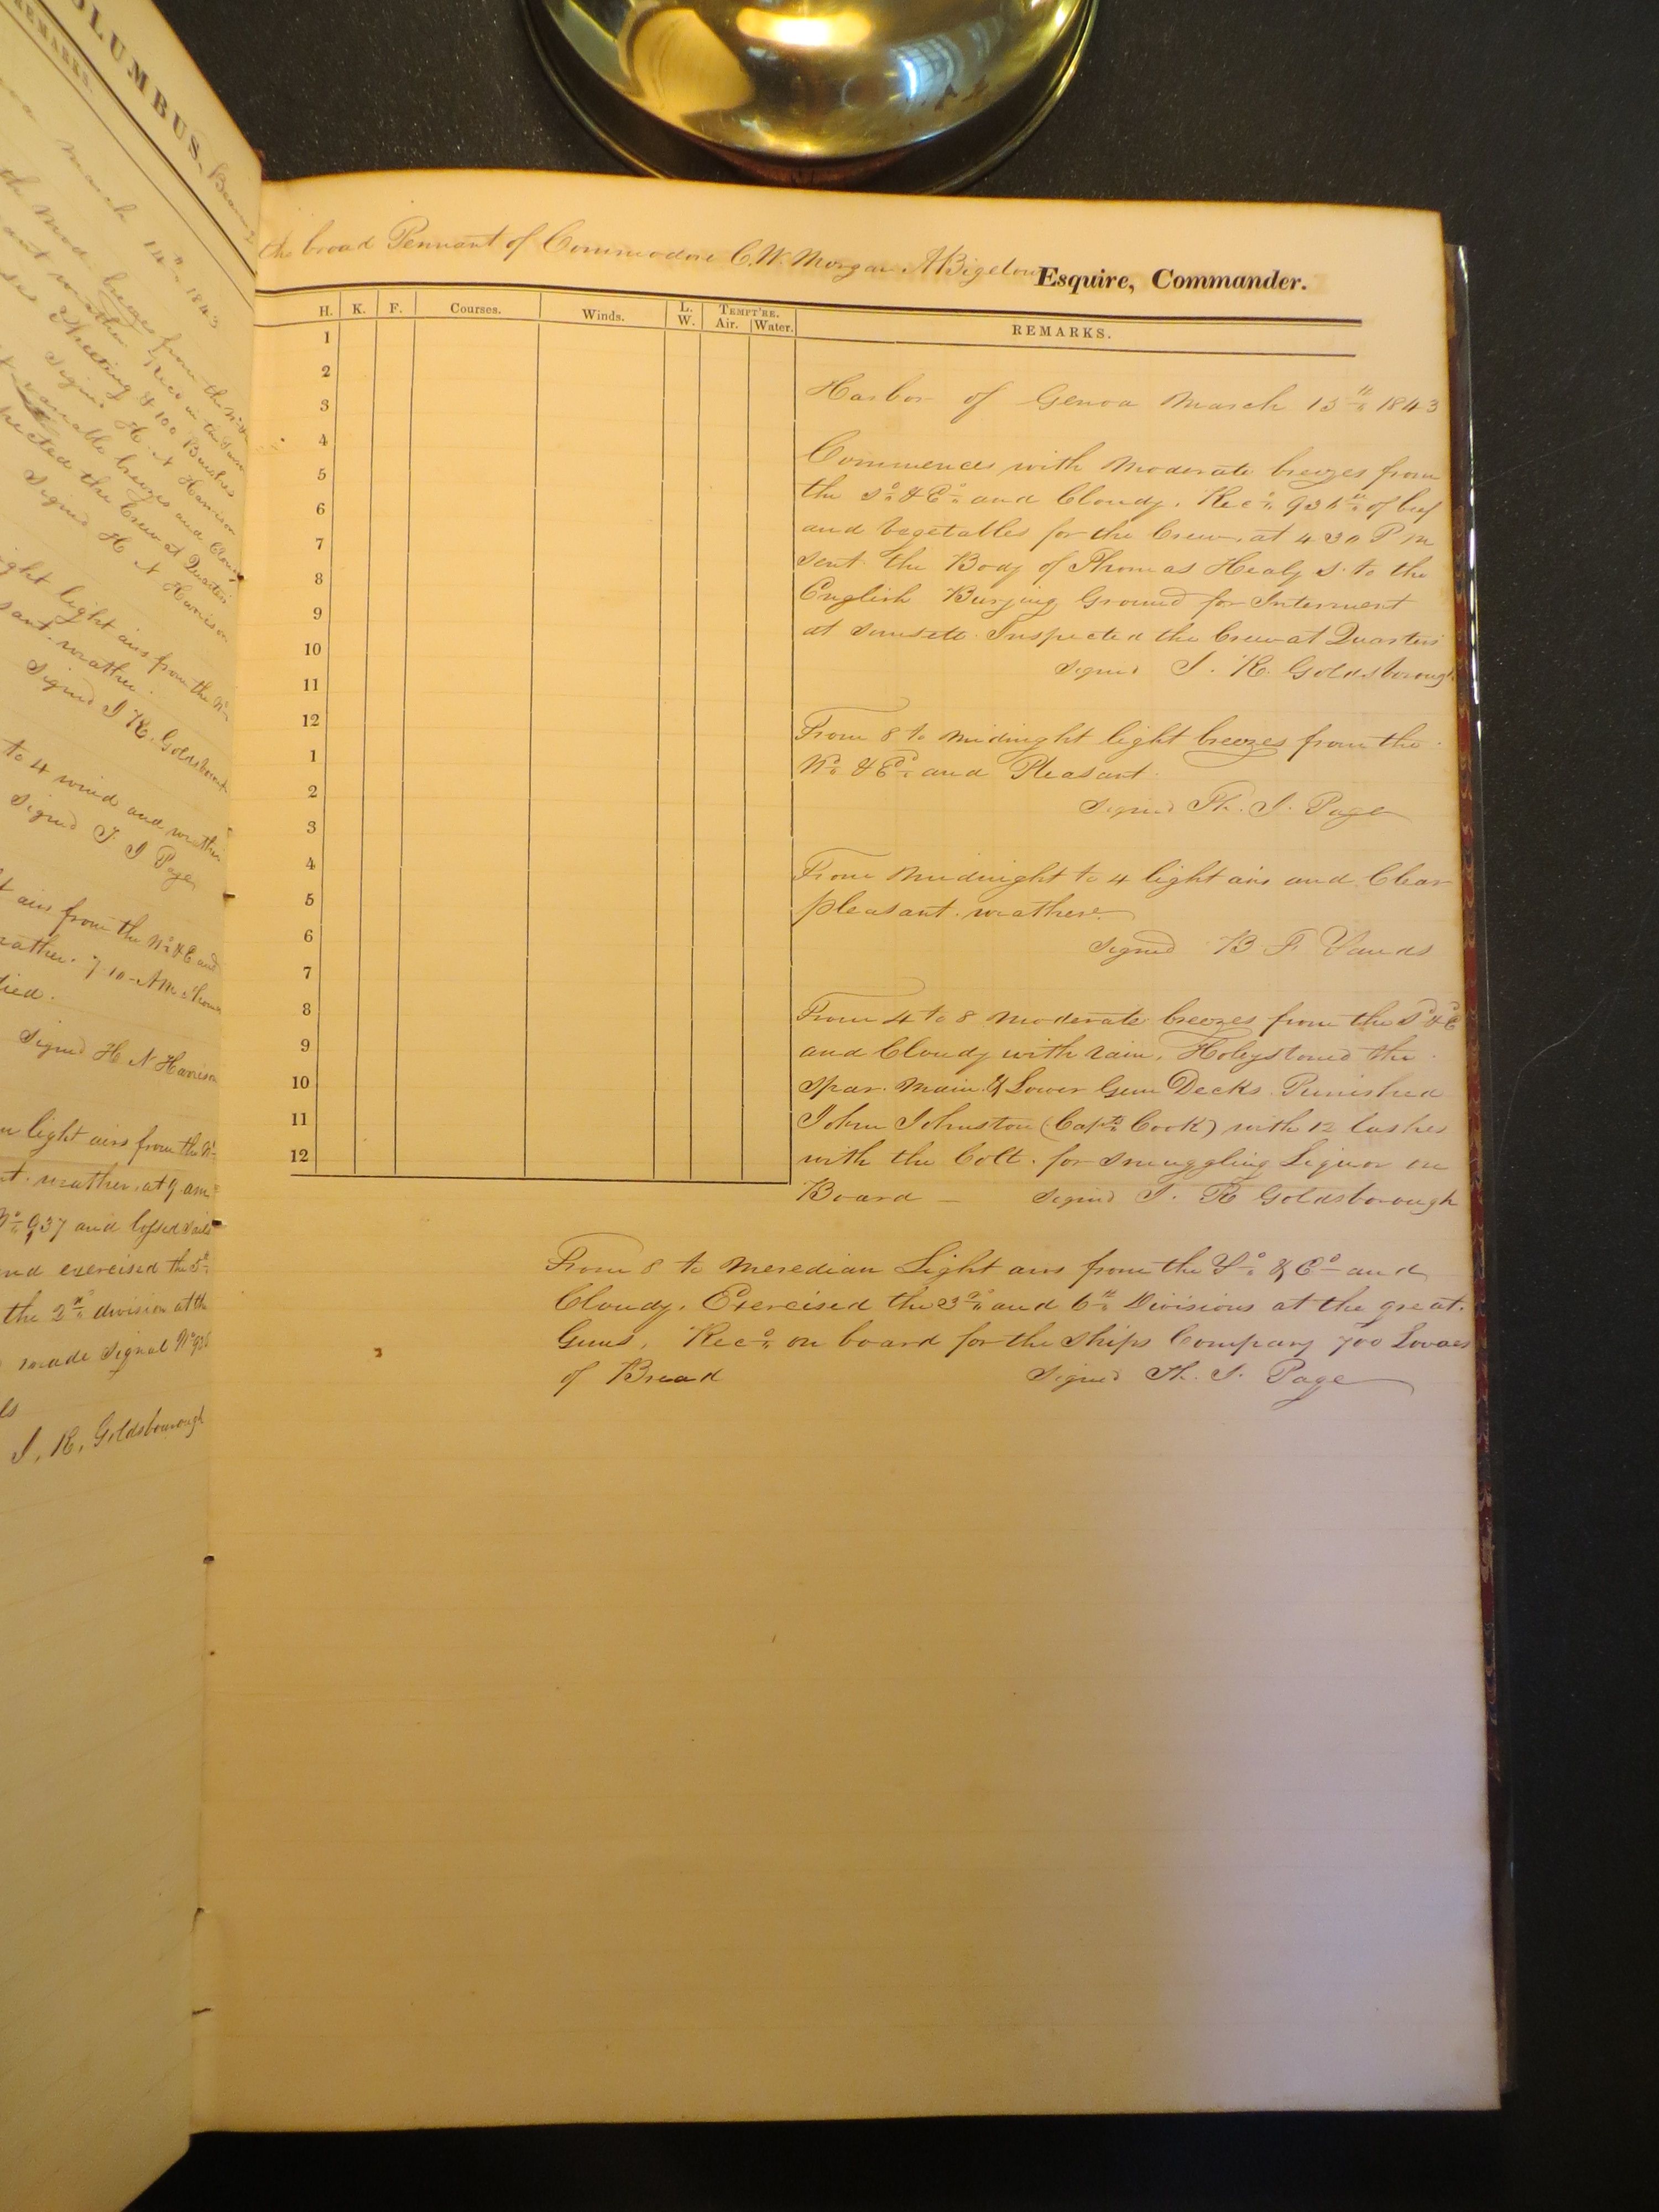 COLUMBUS, Bearing
REMARKS.
March 14th 1843
the Mod. breezes from the No
Recd in the
Sheeting & 100 Bunches
Signed H. N Harrison
breezes and Cloudy
the Crew at Quarters
Signed H N Harrison
light airs from the No
sant weather.
Signed J R. Goldsborough
to 4 wind and weather
Signed T. J Page
airs from the No & E and
weather. 7.10 AM. Thomas
died.
Signed H N Harrison
light airs from the No
weather. at 9 am
No 937 and loosed sails
and exercised the 5th
the 2nd division at the
made Signal No
ls
J. R. Goldsborough
the broad Pennant of Commodore C. W. Morgan A Bigelow Esquire, Commander.
H. K. F. Courses. Winds. L. W. TEMPT'RE. Air. Water. REMARKS.
1
2
3
4
5
6
7
8
9
10
11
12
1
2
3
4
5
6
7
8
9
10
11
12
Harbor of Genoa March 15th 1843
Commences with Moderate breezes from
the So & Eo and Cloudy. Recd 936 lbs of beef
and Vegetables for the Crew. at 4 30 P m
sent the Body of Thomas Healy S. to the
English Burying Ground for Interment
at Sunsett Inspected the Crew at Quarters
Signed J. R. Goldsborough
From 8 to midnight light breezes from the
No & Ed and Pleasant.
Signed Th. J. Page
From Midnight to 4 light airs and Clear
pleasant weather.
Signed B F Sands
From 4 to 8 Moderate breezes from the Sd & Ed
and Cloudy with rain. Holystoned the
Spar. Main & Lower Gun Decks. Punished
John Johnston (Capts Cook) with 12 lashes
with the Colt. for Smuggling Liquor on
Board — Signed J. R Goldsborough
From 8 to Meredian Light airs from the So & Eo and
Cloudy. Exercised the 3rd and 6th Divisions at the great
Guns. Recd on board for the Ships Company 700 Loaves
of Bread Signed Th. J. Page